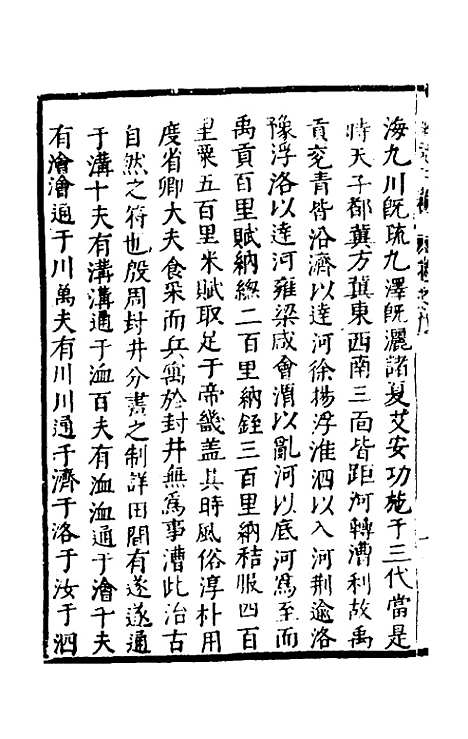 海九川既疏九澤既灑諸夏艾安功施于三代當是
時天子都冀方冀東西南三面皆距河轉漕利故禹
貢兗青皆沿濟以達河徐揚浮淮泗以入河荊逾洛
豫浮洛以達河雍梁咸會渭以亂河以底河為至而
禹貢百里賦納總二百里納銍三百里納秸服四百
里粟五百里米賦取足于帝畿蓋其時風俗淳朴用
度省卿大夫食采而兵寓於封井無為事漕此治古
自然之符也殷周封井分畫之制詳田間有遂遂通
于溝十夫有溝溝通于洫百夫有洫洫通于澮千夫
有澮澮通于川萬夫有川川通于濟于洛于汝于泗